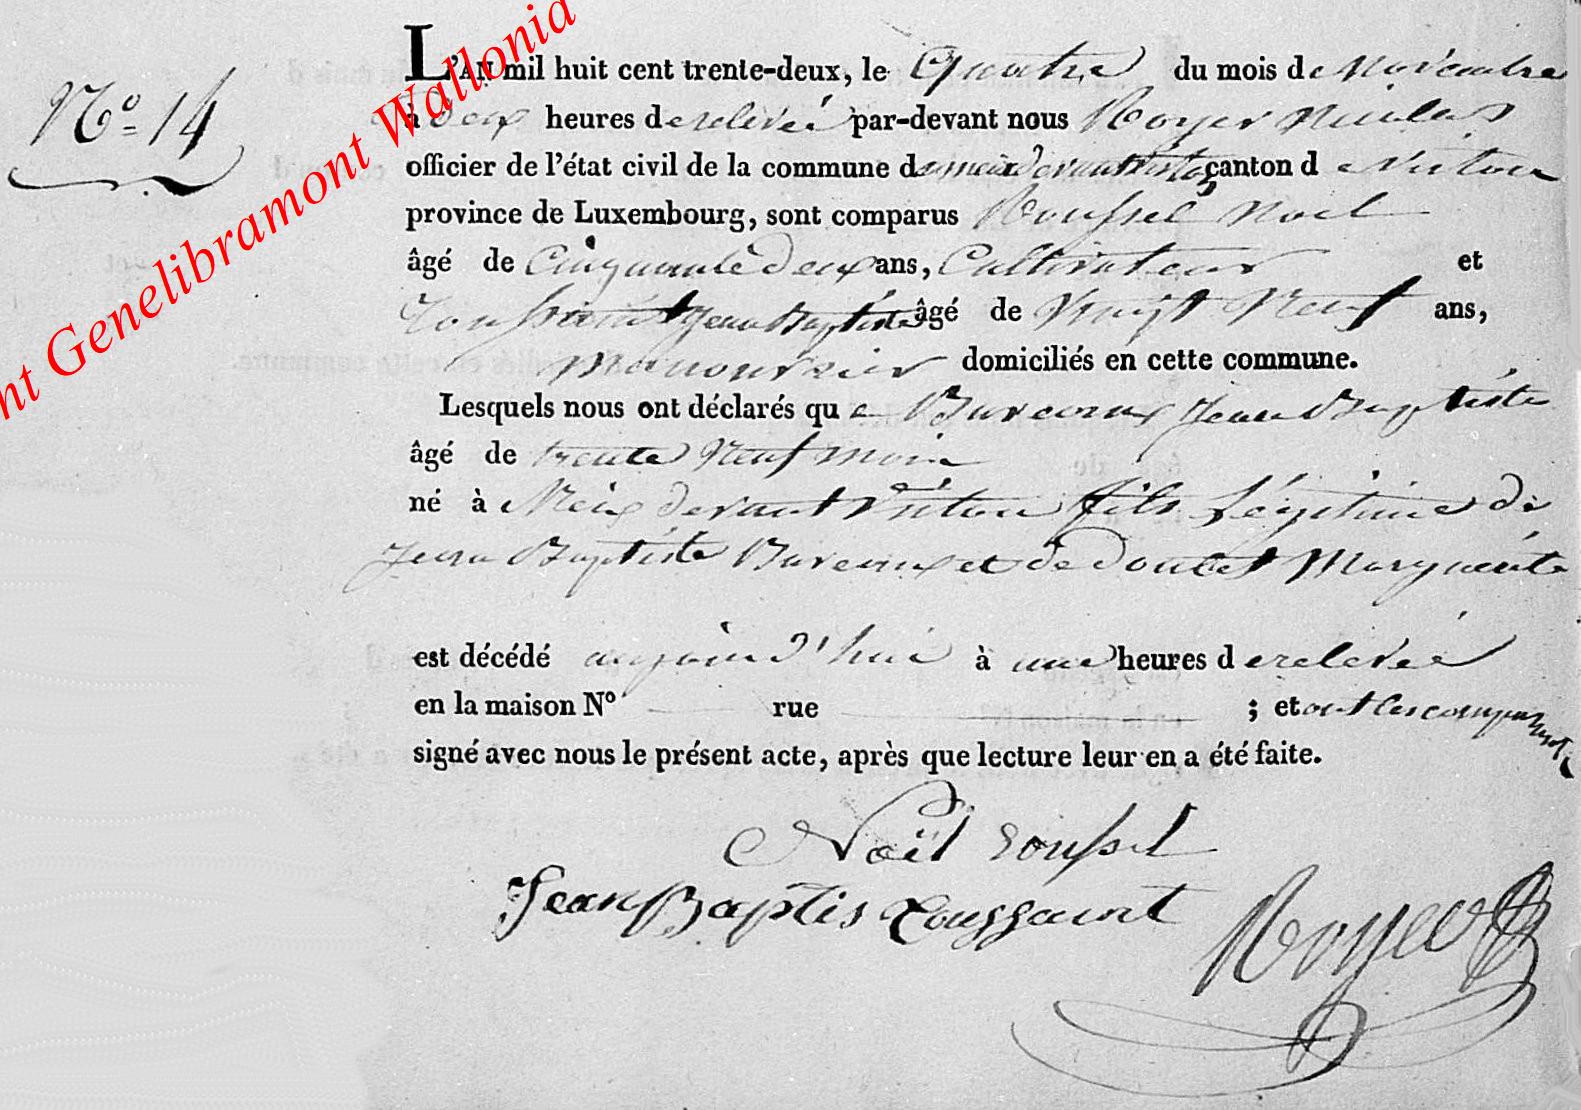 nt Genelibramont Wallonia
N° 14
L'AN mil huit cent trente-deux, le Quatre du mois de Novembre
à deux heures de relevée par-devant nous Royer Nicolas
officier de l'état civil de la commune de meix devant virton canton de virton
province de Luxembourg, sont comparus Roussel Noel
âgé de Cinquante deux ans, Cultivateur et
Toussaint Jean Baptiste âgé de Vingt Neuf ans,
Manouvrier domiciliés en cette commune.
Lesquels nous ont déclarés que Bureaux Jean Baptiste
âgé de trente Neuf mois
né à Meix devant Virton fils légitime de
Jean Baptiste Bureaux et de doucet Marguerite
est décédé aujourd'hui à une heures de relevée
en la maison N° rue ; et ont les comparants
signé avec nous le présent acte, après que lecture leur en a été faite.
Noël roussel
Jean Baptis Toussaint
Royer